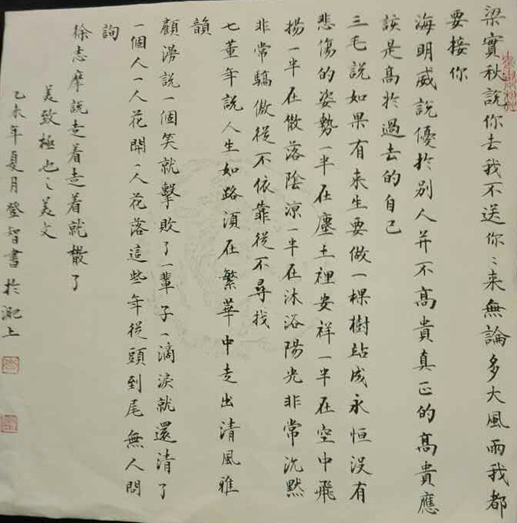 梁實秋說你去我不送你〻來無論多大風雨我都
要接你
海明威說優於別人并不高貴真正的高貴應
該是高於過去的自己
三毛說如果有來生要做一棵樹站成永恒没有
悲傷的姿勢一半在塵土裡安祥一半在空中飛
揚一半在散落陰凉一半在沐浴陽光非常沉默
非常驕傲從不依靠從不尋找
七堇年說人生如路湏在繁華中走出清風雅
韻
顧漫說一個笑就擊敗了一輩子一滴淚就還清了
一個人一人花開一人花落這些年從頭到尾無人問
詢
徐志摩說走着走着就散了
美致極也〻美文
乙未年夏月登智書於沘上